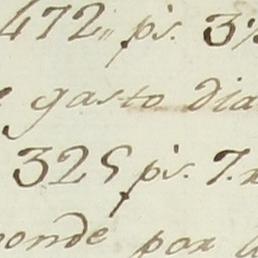 472,, ps. 3½
gasto dia
325 ps. 7. r
ponde por